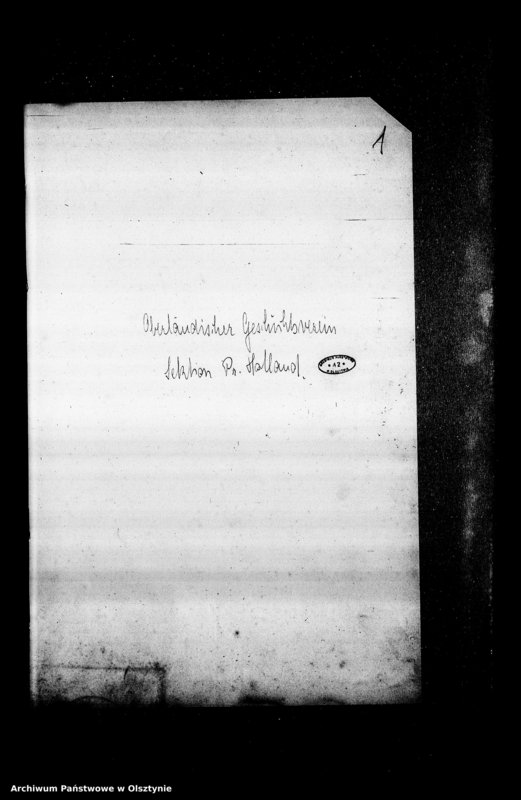 1
Oberländischer Geschichtsverein
Sektion Pr. Holland.
* A2 *
Archiwum Państwowe w Olsztynie